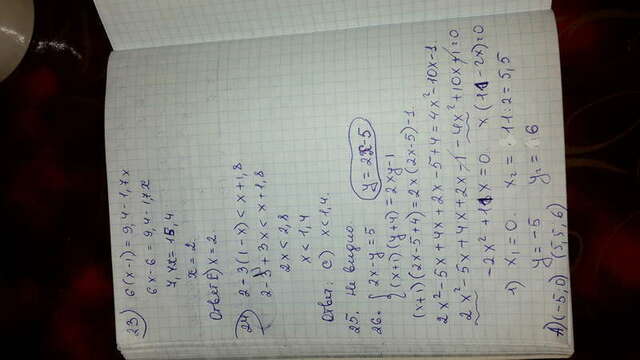 23) 6(x-1) = 9,4-1,7x
6x-6 = 9,4-1,7x
7,7x = 15,4
x = 2
Ответ: B) x = 2
24) 2-3(1-x) < x+1,8
2-3+3x < x+1,8
2x < 2,8
x < 1,4
Ответ: C) x < 1,4.
25. Не видно
26. { 2x-y = 5 y = 2x-5
(x+1)(y+4) = 2xy-1
(x+1)(2x-5+4) = 2x(2x-5)-1.
2x²-5x+4x+2x-5+4 = 4x²-10x-1.
2x²-5x+4x+2x-1-4x²+10x+1=0
-2x²+11x=0. x(11-2x)=0
1) x₁=0. x₂= 11:2=5,5
y=-5 y₂= 6
A) (-5;0) (5,5; 6)